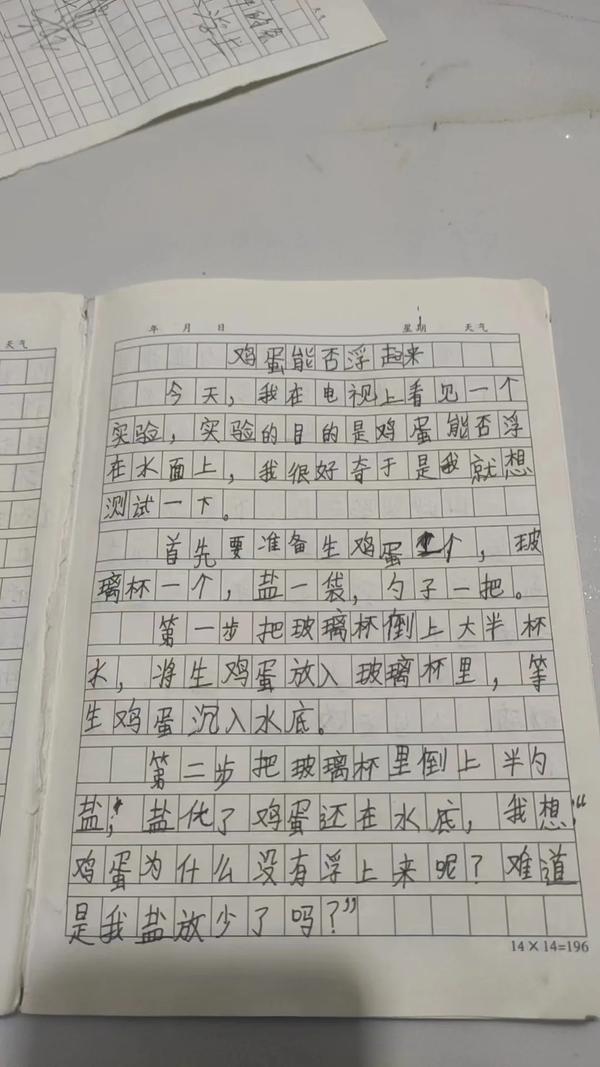 年 月 日 星期 天气
天气
鸡蛋能否浮起来
今天，我在电视上看见一个
实验，实验的目的是鸡蛋能否浮
在水面上，我很好奇于是我就想
测试一下。
首先要准备生鸡蛋个，玻
璃杯一个，盐一袋，勺子一把。
第一步把玻璃杯倒上大半杯
水，将生鸡蛋放入玻璃杯里，等
生鸡蛋沉入水底。
第二步把玻璃杯里倒上半勺
盐，盐化了鸡蛋还在水底，我想，“
鸡蛋为什么没有浮上来呢？难道
是我盐放少了吗？”
14×14=196